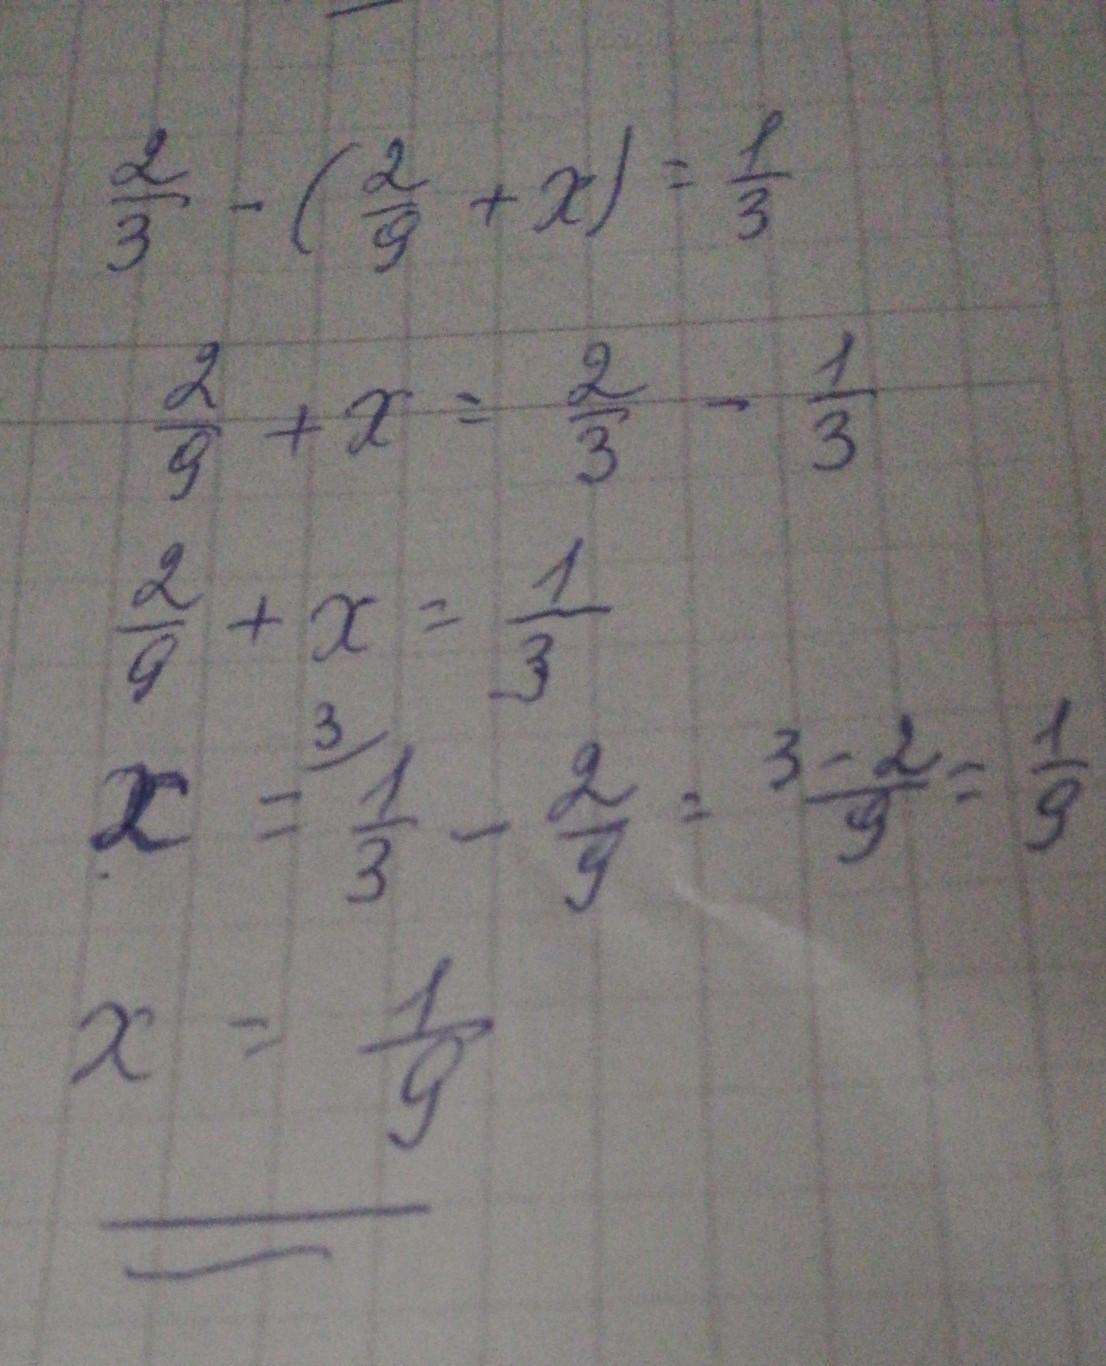 2/3 - (2/9 + x) = 1/3
2/9 + x = 2/3 - 1/3
2/9 + x = 1/3
x = 3/ 1/3 - 2/9 = (3-2)/9 = 1/9
x = 1/9